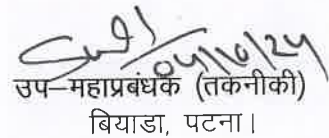 04/10/24
उप–महाप्रबंधक (तकनीकी)
बियाडा, पटना।